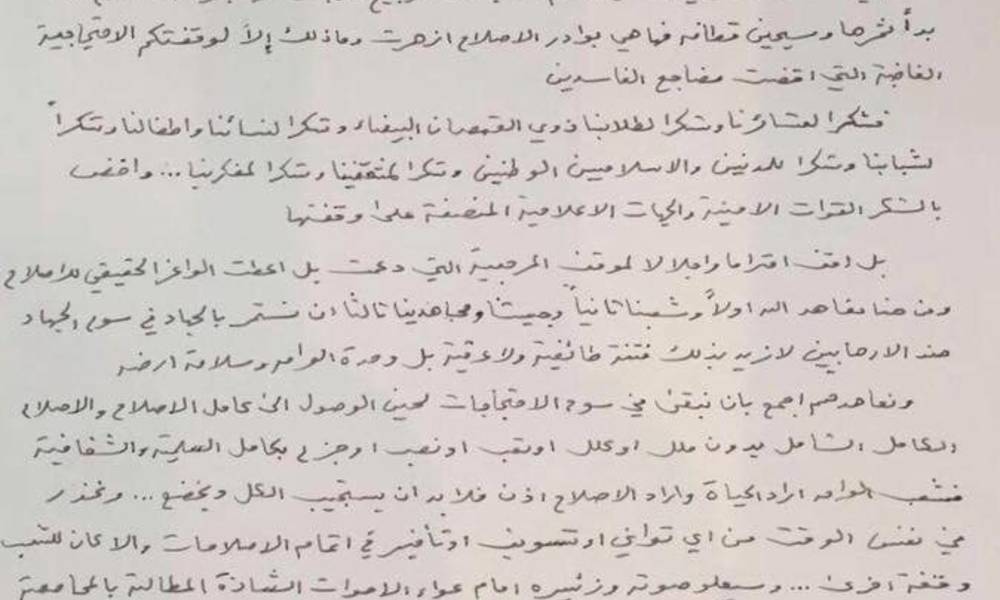 بدأ ثمرها وسيحين قطافه فها هي بوادر الاصلاح ازهرت وما ذلك إلا لوقفتكم الاحتجاجية
الغاضبة التي اقضت مضاجع الفاسدين
فشكرا لعشائرنا وشكرا لطلابنا ذوي القمصان البيضاء وشكرا لنسائنا واطفالنا وشكراً
لشبابنا وشكرا للمدنيين والاسلاميين الوطنيين وشكرا لمثقفينا وشكرا لمفكرينا ... واخص
بالشكر القوات الامنية والجهات الاعلامية المنصفة على وقفتها
بل اقف احتراما واجلالا لموقف المرجعية التي دعت بل اعطت الواعز الحقيقي للاصلاح
ومن هنا نعاهد الله اولاً وشعبنا ثانياً وجيشنا ومجاهدينا ثالثا ان نستمر بالجهاد في سوح الجهاد
ضد الارهابيين لا نريد بذلك فتنة طائفية ولا عرقية بل وحدة العراق وسلامة ارضه
ونعاهدهم اجمع بان نبقى في سوح الاحتجاجات لحين الوصول الى كامل الاصلاح والاصلاح
الكامل الشامل بدون ملل او كلل او تعب او نصب او جزع بكامل السلمية والشفافية
فشعب العراق اراد الحياة واراد الاصلاح اذن فلا بد ان يستجيب الكل ويخضع ... ونحذر
في نفس الوقت من اي تواني او تسويف او تأخير في اتمام الاصلاحات والا كان للشعب
وقفة اخرى ... وسيعلو صوته وزئيره امام عواء الاصوات الشاذة المطالبة بالمحاصصة